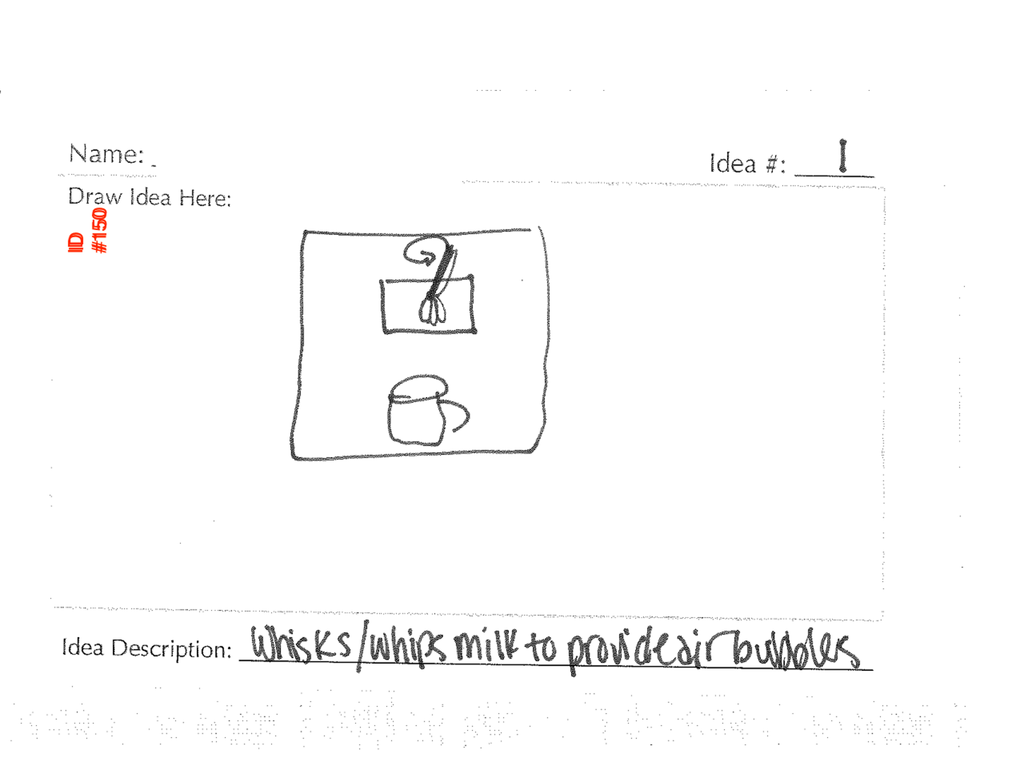 Name:
Idea #: 1
Draw Idea Here:
ID
#150
Idea Description: Whisks/whips milk to provide air bubbles